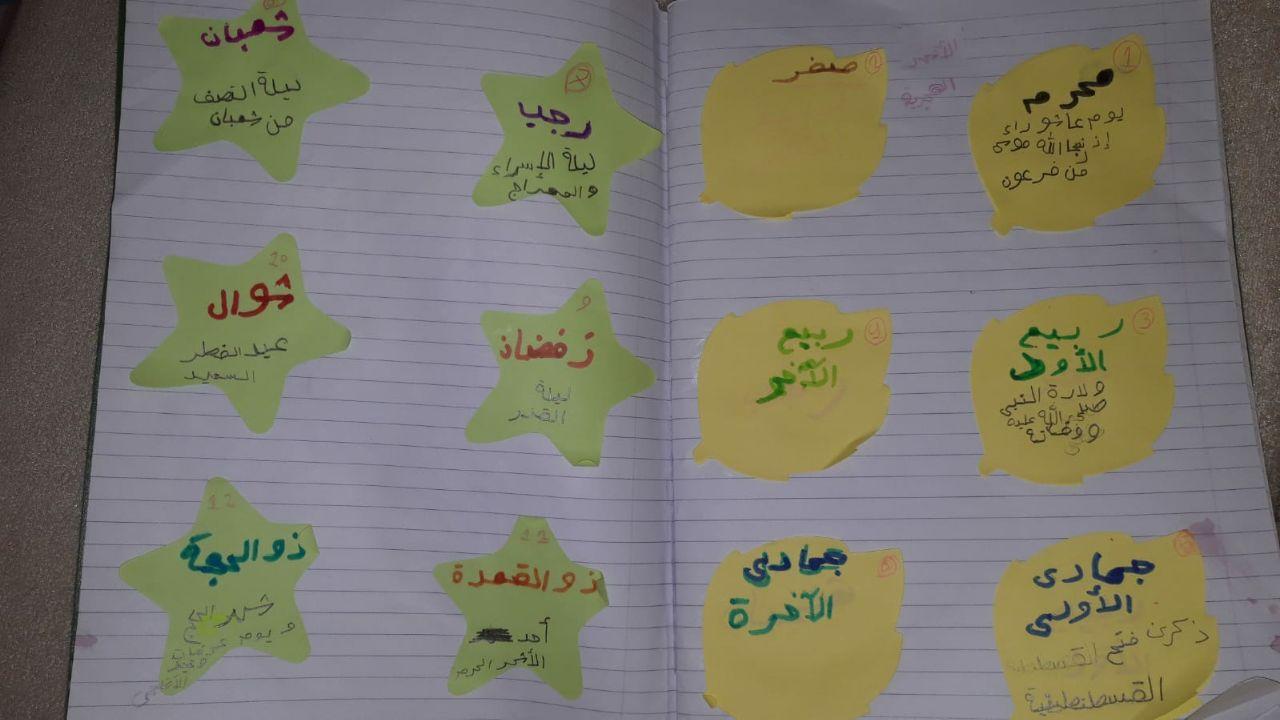 الأشهر
الهجرية
1
محرم
يوم عاشوراء
إذ نجا الله موسى
من فرعون
2
صفر
3
ربيع
الأول
ولادة النبي
صلى الله عليه
ووفاته
ربيع
الآخر
جمادى
الأولى
ذكرى فتح
القسطنطينية
جمادى
الآخرة
رجب
ليلة الإسراء
والمعراج
شعبان
ليلة النصف
من شعبان
9
رمضان
ليلة
القدر
10
شوال
عيد الفطر
السعيد
11
ذو القعدة
أحد
الأشهر الحرم
12
ذو الحجة
شهر الحج
و يوم عرفات
وعيد
الأضحى